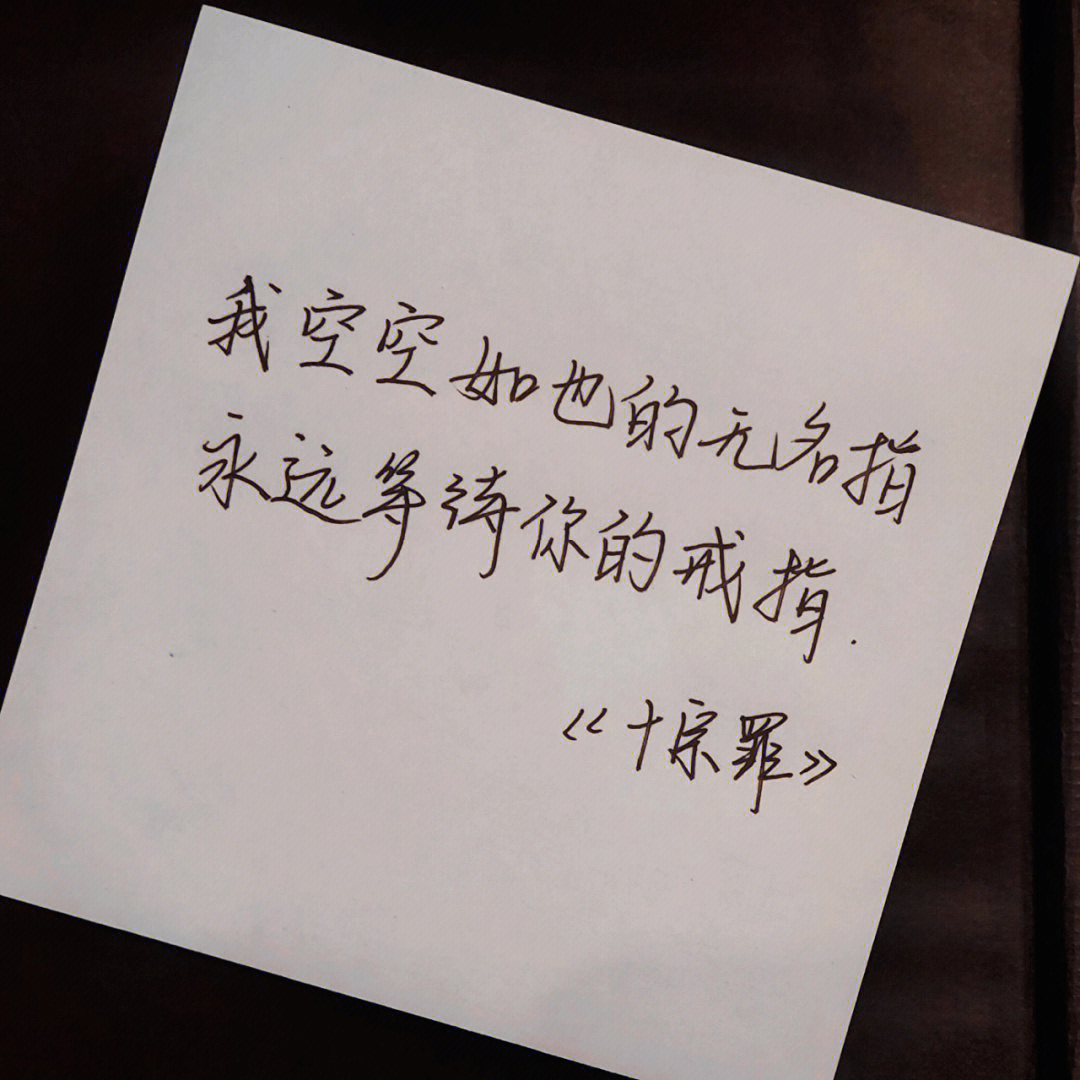 我空空如也的无名指
永远等待你的戒指.
《十宗罪》